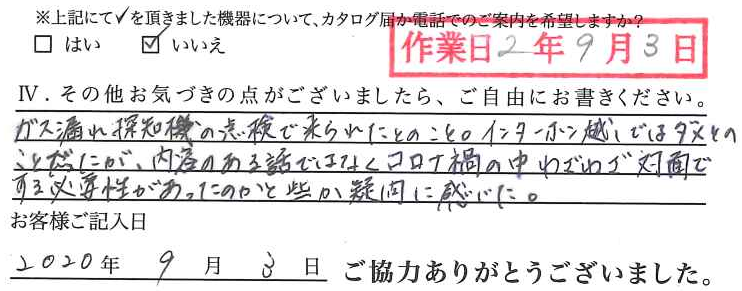 ※上記にて✓を頂きました機器について、カタログ届か電話でのご案内を希望しますか?
□ はい ☑ いいえ
作業日 2年9月3日
Ⅳ.その他お気づきの点がございましたら、ご自由にお書きください。
ガス漏れ探知機の点検で来られたとのこと。インターホン越しではダメとの
ことだったが、内容のある話ではなくコロナ禍の中わざわざ対面で
する必要性があったのかと些か疑問に感じた。
お客様ご記入日
2020年 9月 3日 ご協力ありがとうございました。